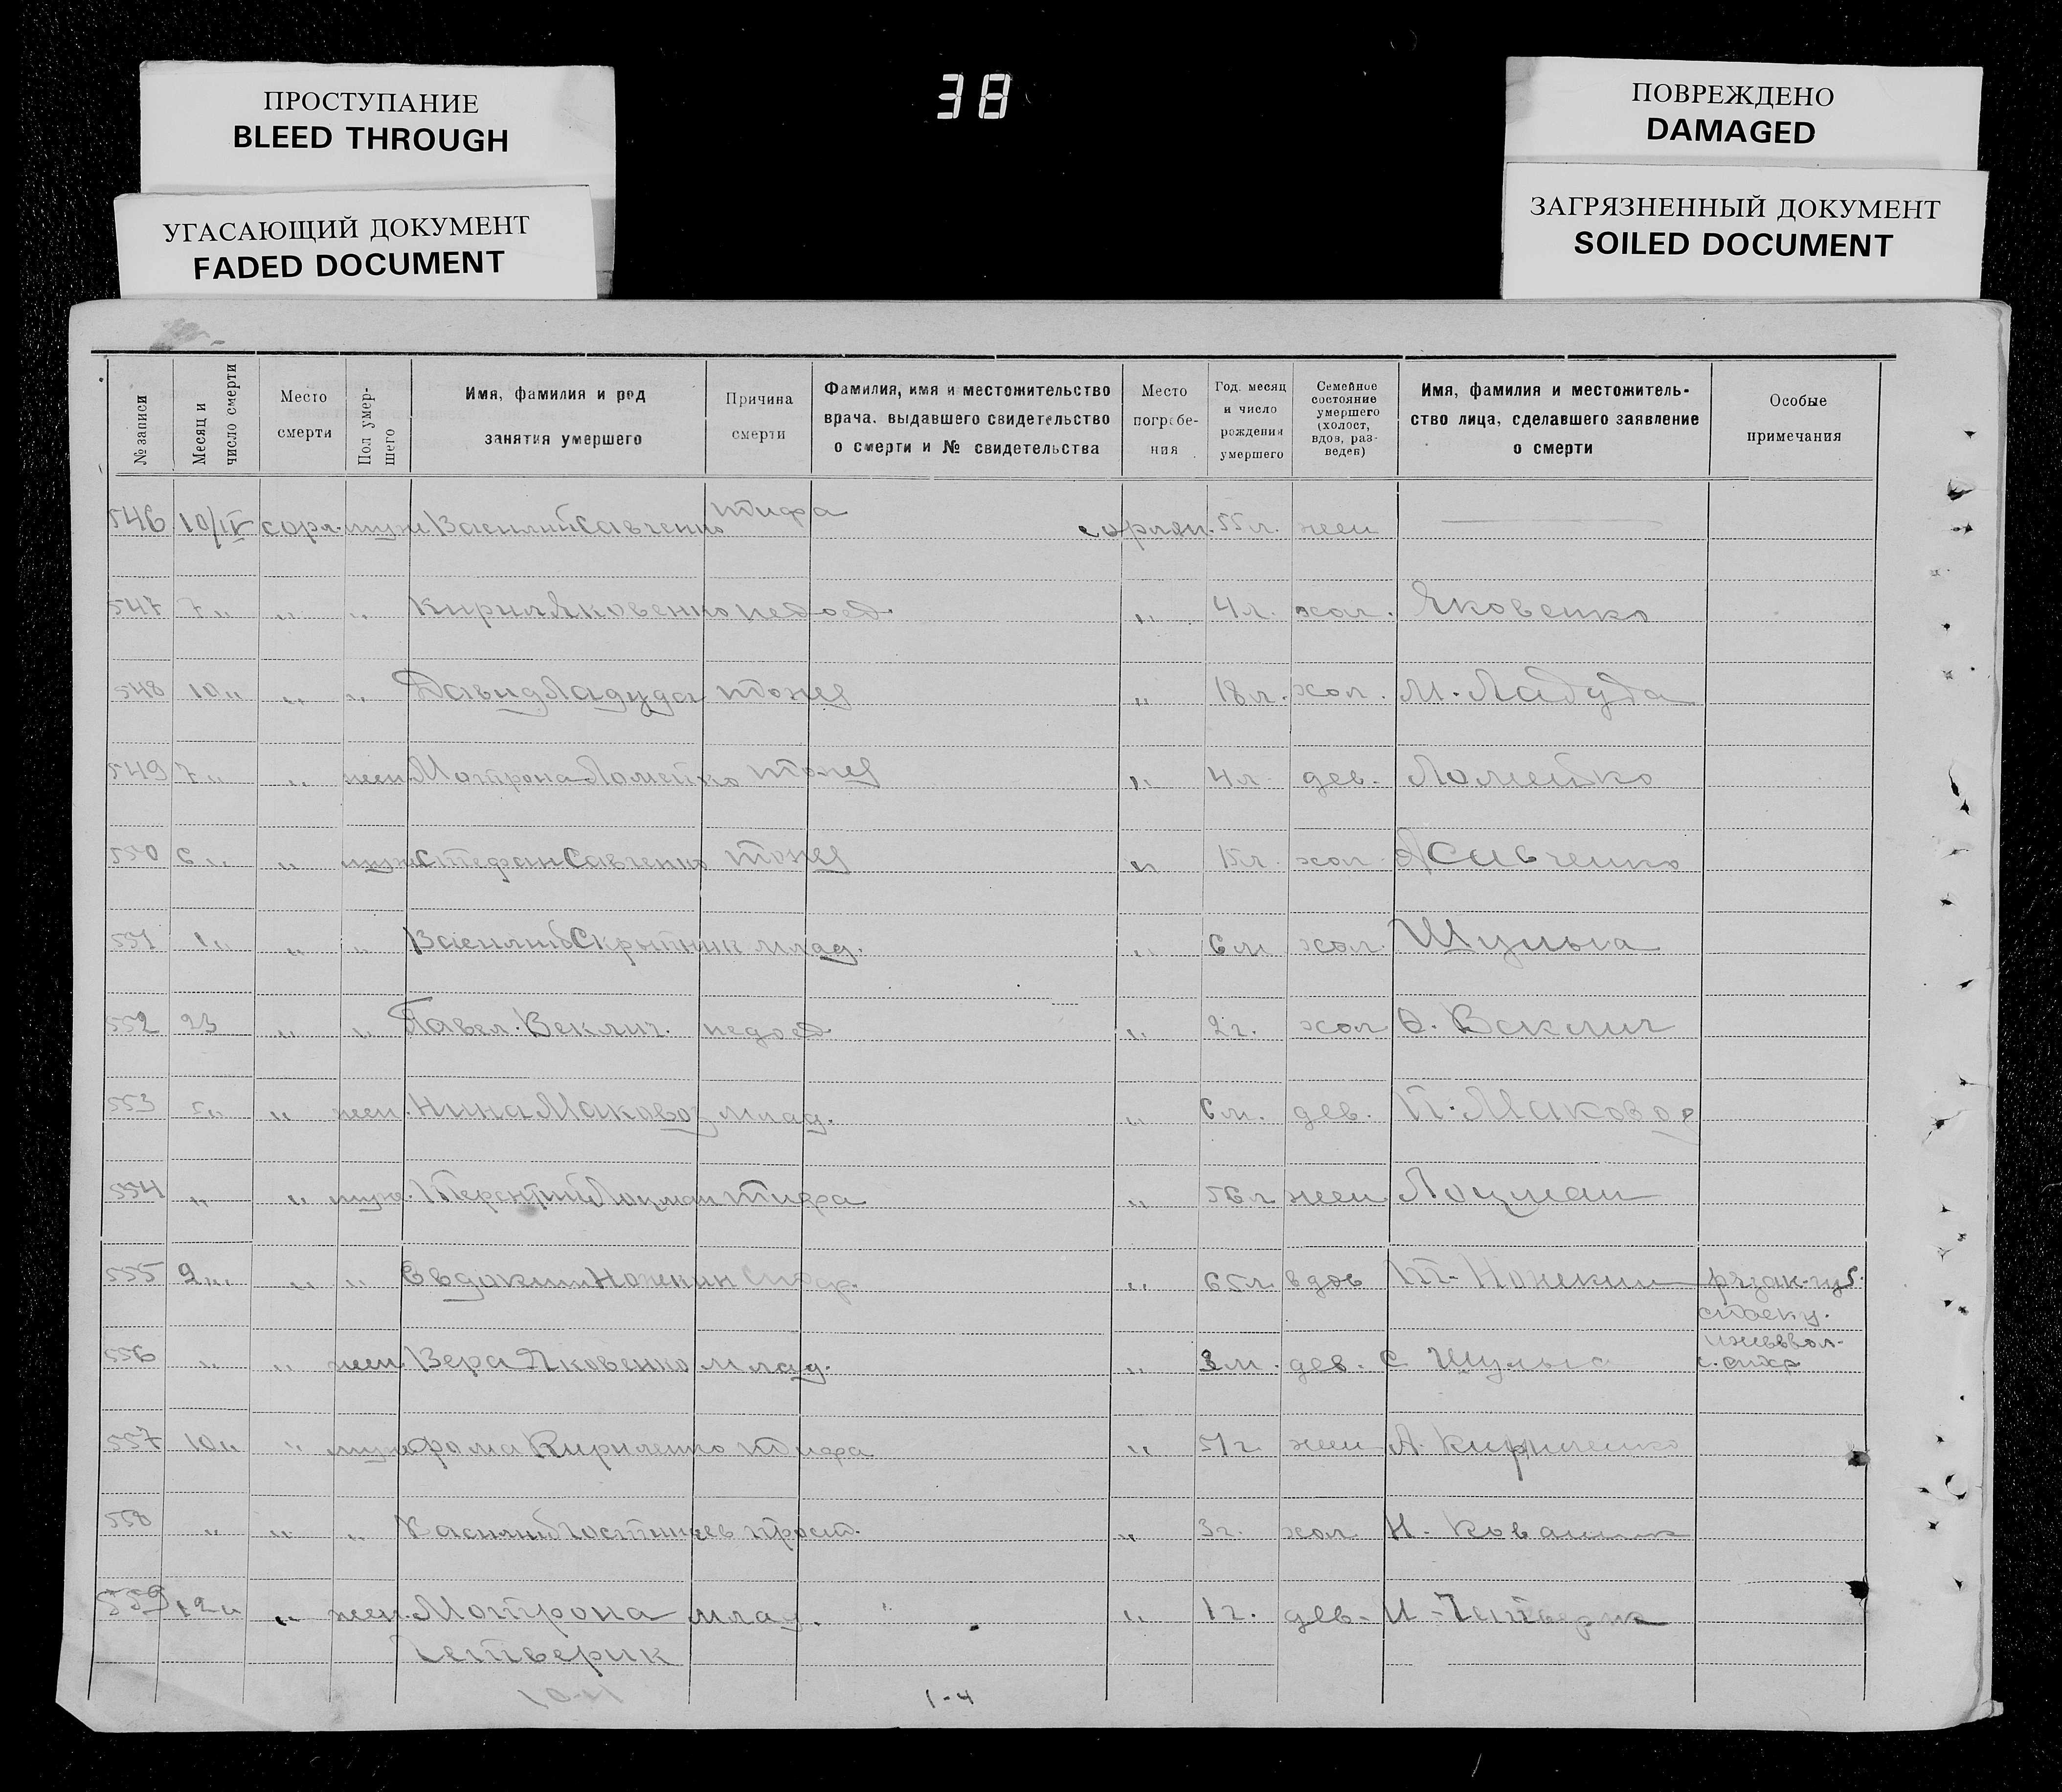 ПРОСТУПАНИЕ
BLEED THROUGH
УГАСАЮЩИЙ ДОКУМЕНТ
FADED DOCUMENT
38
ПОВРЕЖДЕНО
DAMAGED
ЗАГРЯЗНЕННЫЙ ДОКУМЕНТ
SOILED DOCUMENT
№ записи
Месяц и
число смерти
Место
смерти
Пол умер-
шего
Имя, фамилия и род
занятия умершего
Причина
смерти
Фамилия, имя и местожительство
врача, выдавшего свидетельство
о смерти и № свидетельства
Место
погребе-
ния
Год, месяц
и число
рождения
умершего
Семейное
состояние
умершего
(холост,
вдов, раз-
веден)
Имя, фамилия и местожитель-
ство лица, сделавшего заявление
о смерти
Особые
примечания
546 10/IV муж Василий Савченко тифа 55 л. жен
547 7 " " " Кирил Яковенко недоед. " 4 л. хол. Яковенко
548 10 " " " Давид Ладуда тожед " 18 л. хол. М. Ладуда
549 7 " " жен. Мотрона Ломейко тожед " 4 л. дев. Ломейко
550 6 " " муж Стефан Савченко тожед " хол. Савченко
551 1 " " " Василий Скрытник млад. " 6 м хол. Шульга
552 23 " " Павел Веклич. недоед. " 2 г. хол О. Веклич
553 5 " " жен. Нина Маковоз млад. " 6 м. дев. П. Маковоз
554 " " муж. Терентий Лоцман тифа " 56 л жен Лоцман
555 9 " " " Евдоким Ножекин " 65 л. вдов Ножекин
556 " " жен. Вера Яковенко млад. " 3 м. дев. С Шульга
557 10 " " муж Фома Кириленко тифа " 51 г. жен А. Кириленко
558 " " " Василий прост. " 3 г. хол Н.
559 12 " " жен. Мотрона млад. " 1 г. дев- И - Четверик
Четверик
1-4